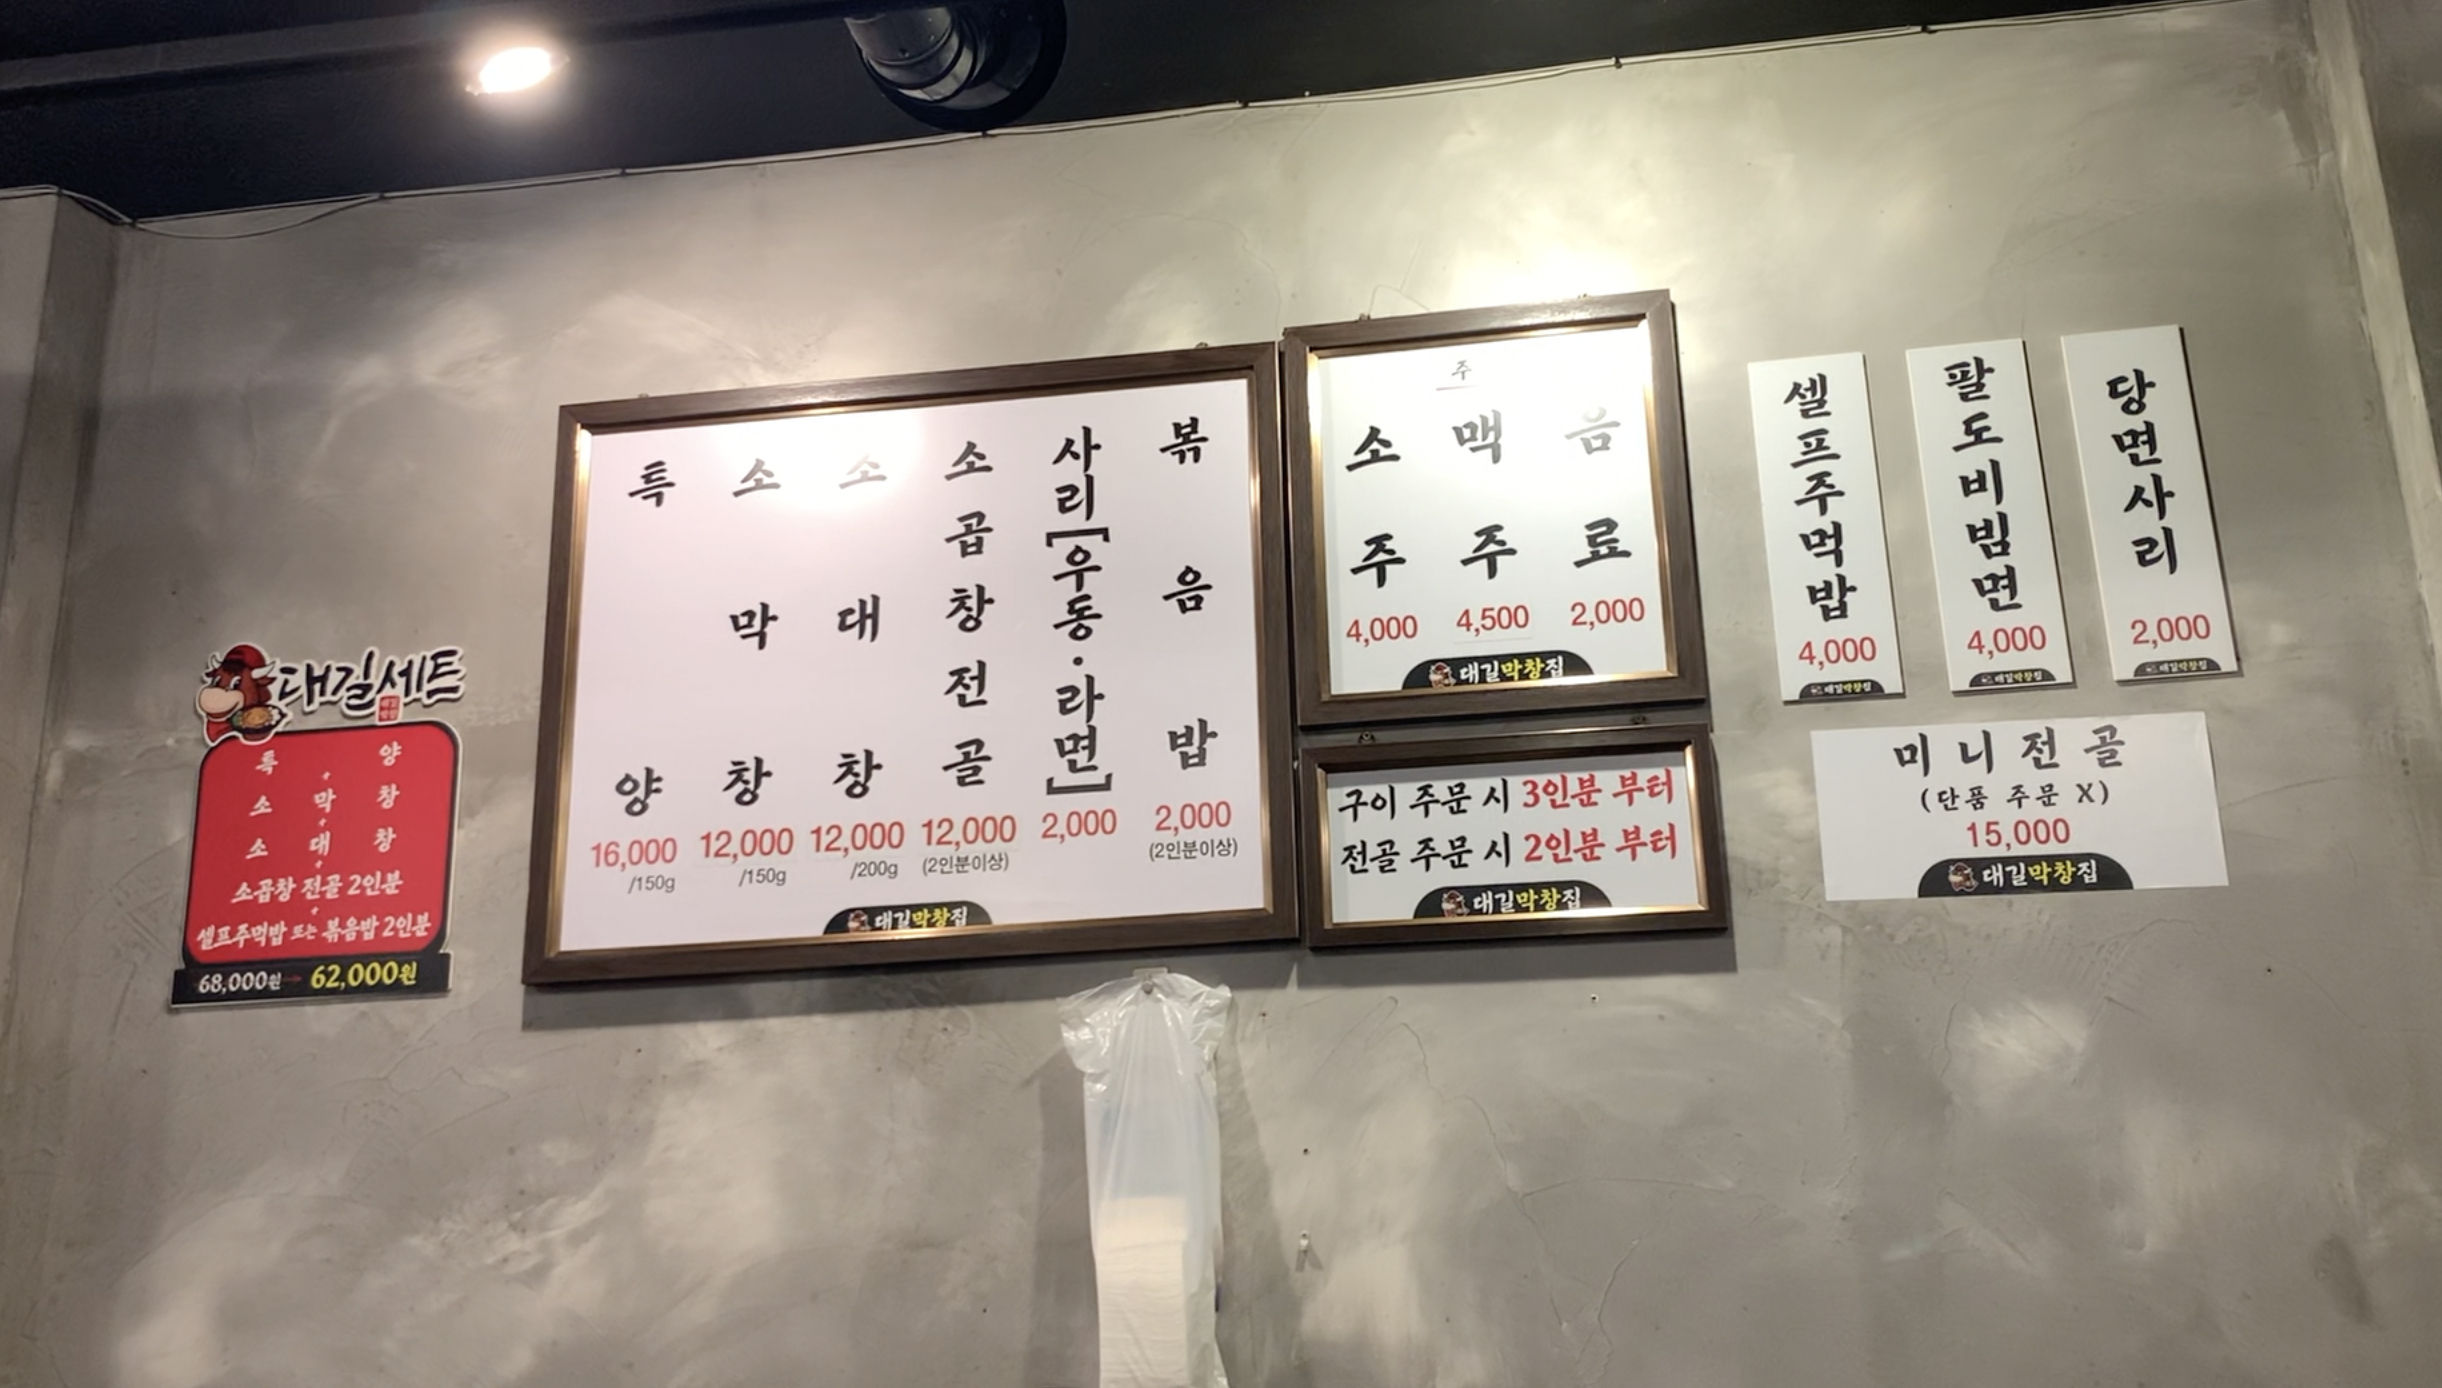 대길세트
특양
+
소막창
+
소대창
+
소곱창 전골 2인분
+
셀프주먹밥 또는 볶음밥 2인분
68,000원 → 62,000원
특양
16,000
/150g
소막창
12,000
/150g
소대창
12,000
/200g
소곱창전골
12,000
(2인분이상)
사리[우동·라면]
2,000
볶음밥
2,000
(2인분이상)
대길막창집
주
소주
4,000
맥주
4,500
음료
2,000
대길막창집
구이 주문 시 3인분 부터
전골 주문 시 2인분 부터
대길막창집
셀프주먹밥
4,000
대길막창집
팔도비빔면
4,000
대길막창집
당면사리
2,000
대길막창집
미니전골
(단품 주문 X)
15,000
대길막창집